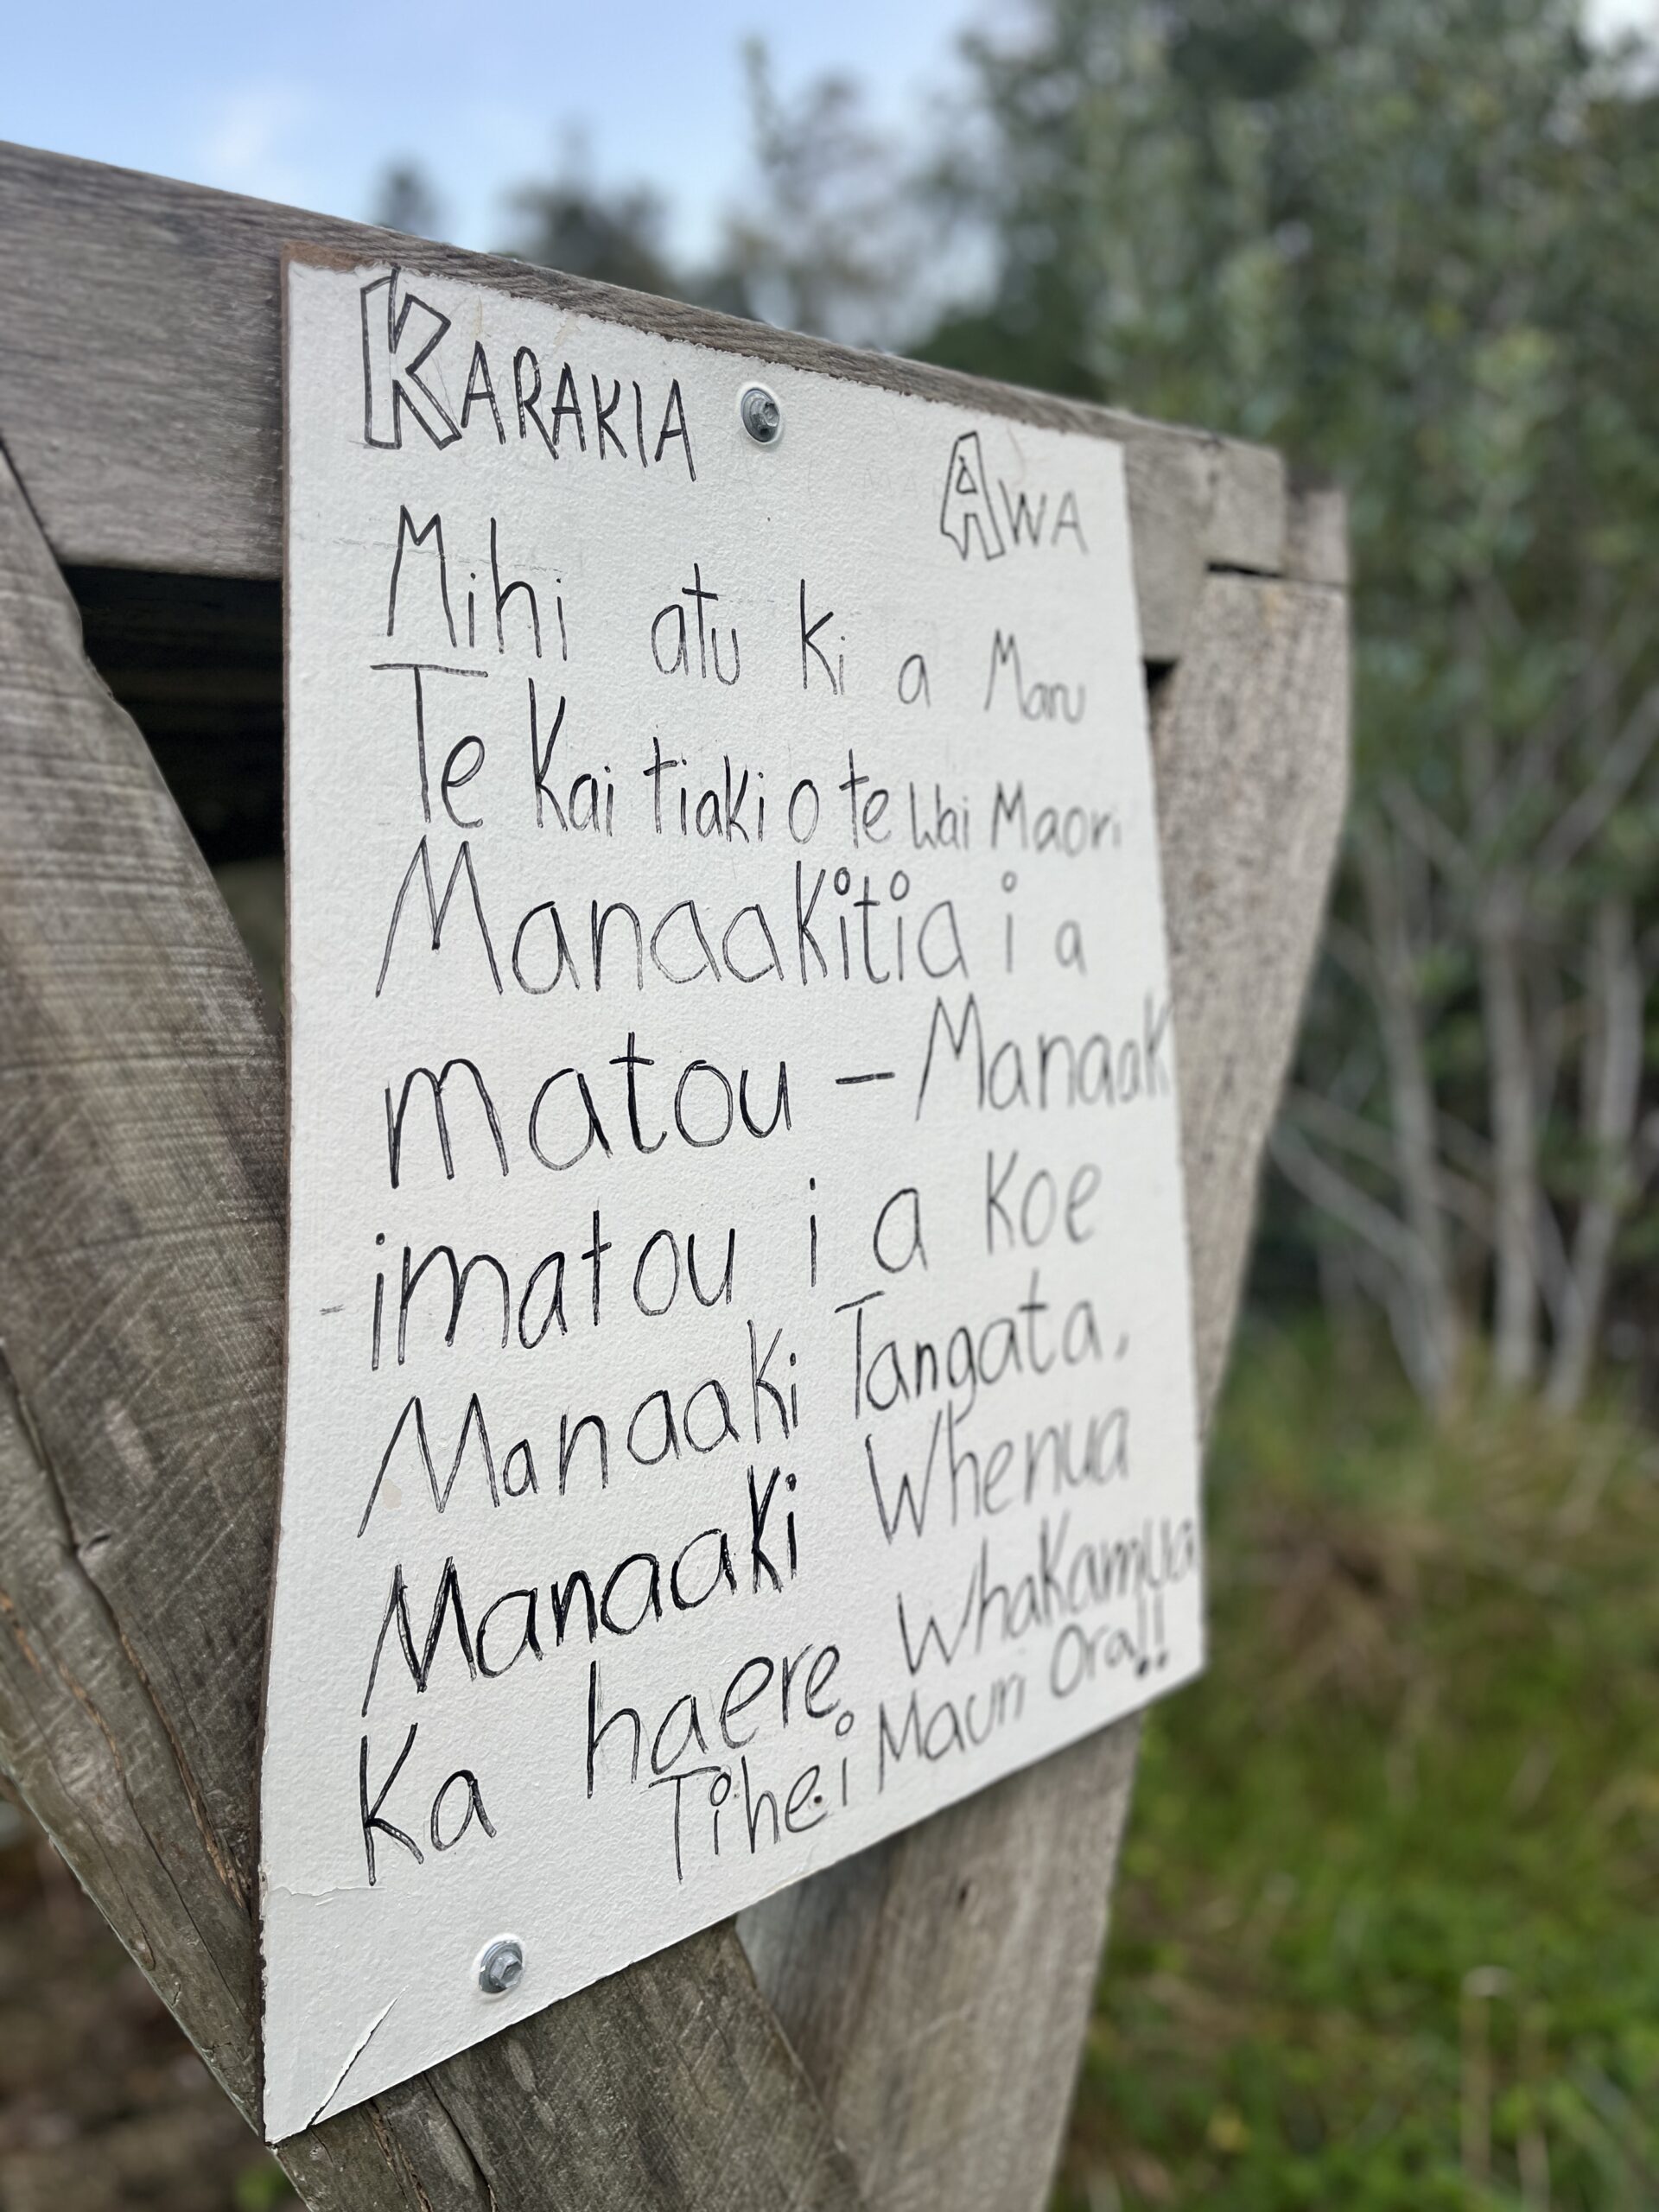 KARAKIA AWA
Mihi atu ki a Maru
Te Kai tiaki o te Wai Maori
Manaakitia i a
matou - Manaak
imatou i a Koe
Manaaki Tangata,
Manaaki Whenua
Ka haere WhaKamua
Tihei Mauri Ora!!